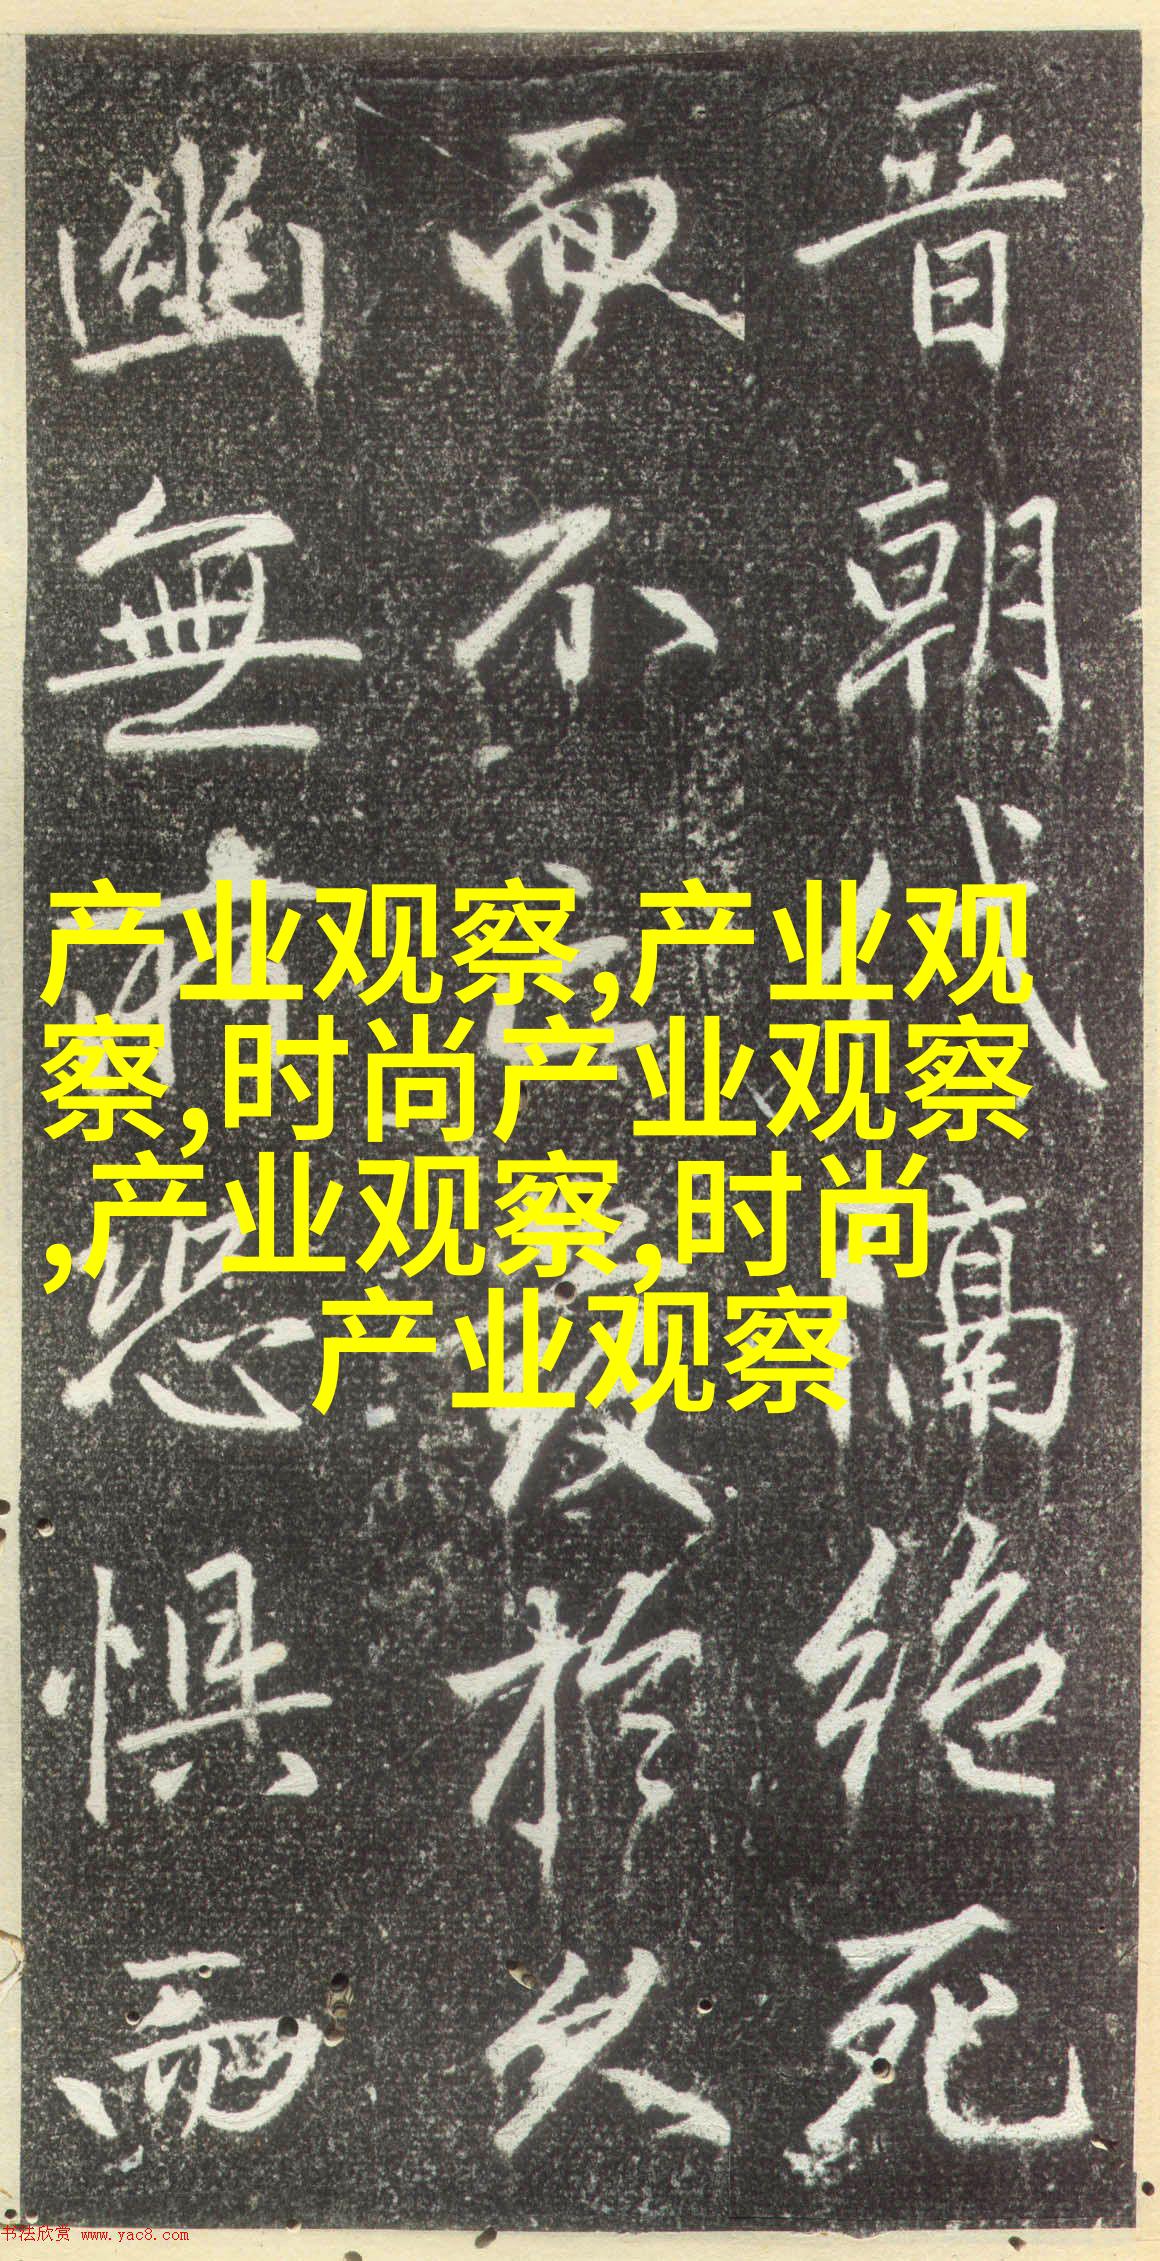 晋朝代隔絶死
而不亡於久
幽無所恐惧而
产业观察,产业观
察,时尚产业观察
,产业观察,时尚
产业观察
书法欣赏 www.yac8.com